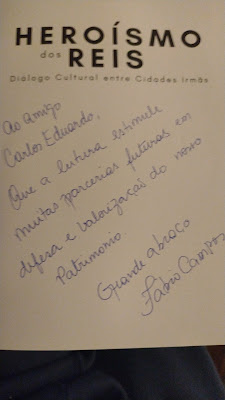 HEROÍSMO
dos REIS
Diálogo Cultural entre Cidades Irmãs
Ao amigo
Carlos Eduardo,
Que a leitura estimule
muitas parcerias futuras em
difesa e valorização do nosso
Patrimonio.
Grande abraço
Fábio Campos